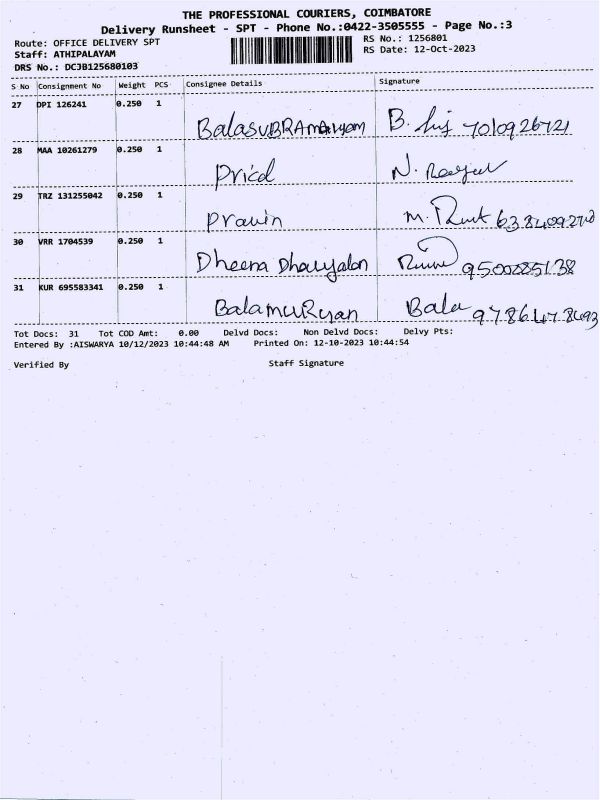 THE PROFESSIONAL COURIERS, COIMBATORE
Delivery Runsheet - SPT - Phone No.:0422-3505555 - Page No.:3
Route: OFFICE DELIVERY SPT RS No.: 1256801
Staff: ATHIPALAYAM RS Date: 12-Oct-2023
DRS No.: DCJB125680103
S No Consignment No Weight PCS Consignee Details Signature
27 DPI 126241 0.250 1
BalasuBRAmaniyam B. 7010926721
28 MAA 10261279 0.250 1
Pricol N.
29 TRZ 131255042 0.250 1
Pravin M.
30 VRR 1704539 0.250 1
Dheena Dhayalan 9500285138
31 KUR 695583341 0.250 1
BalamuRugan Bala 9786478693
Tot Docs: 31 Tot COD Amt: 0.00 Delvd Docs: Non Delvd Docs: Delvy Pts:
Entered By :AISWARYA 10/12/2023 10:44:48 AM Printed On: 12-10-2023 10:44:54
Verified By Staff Signature